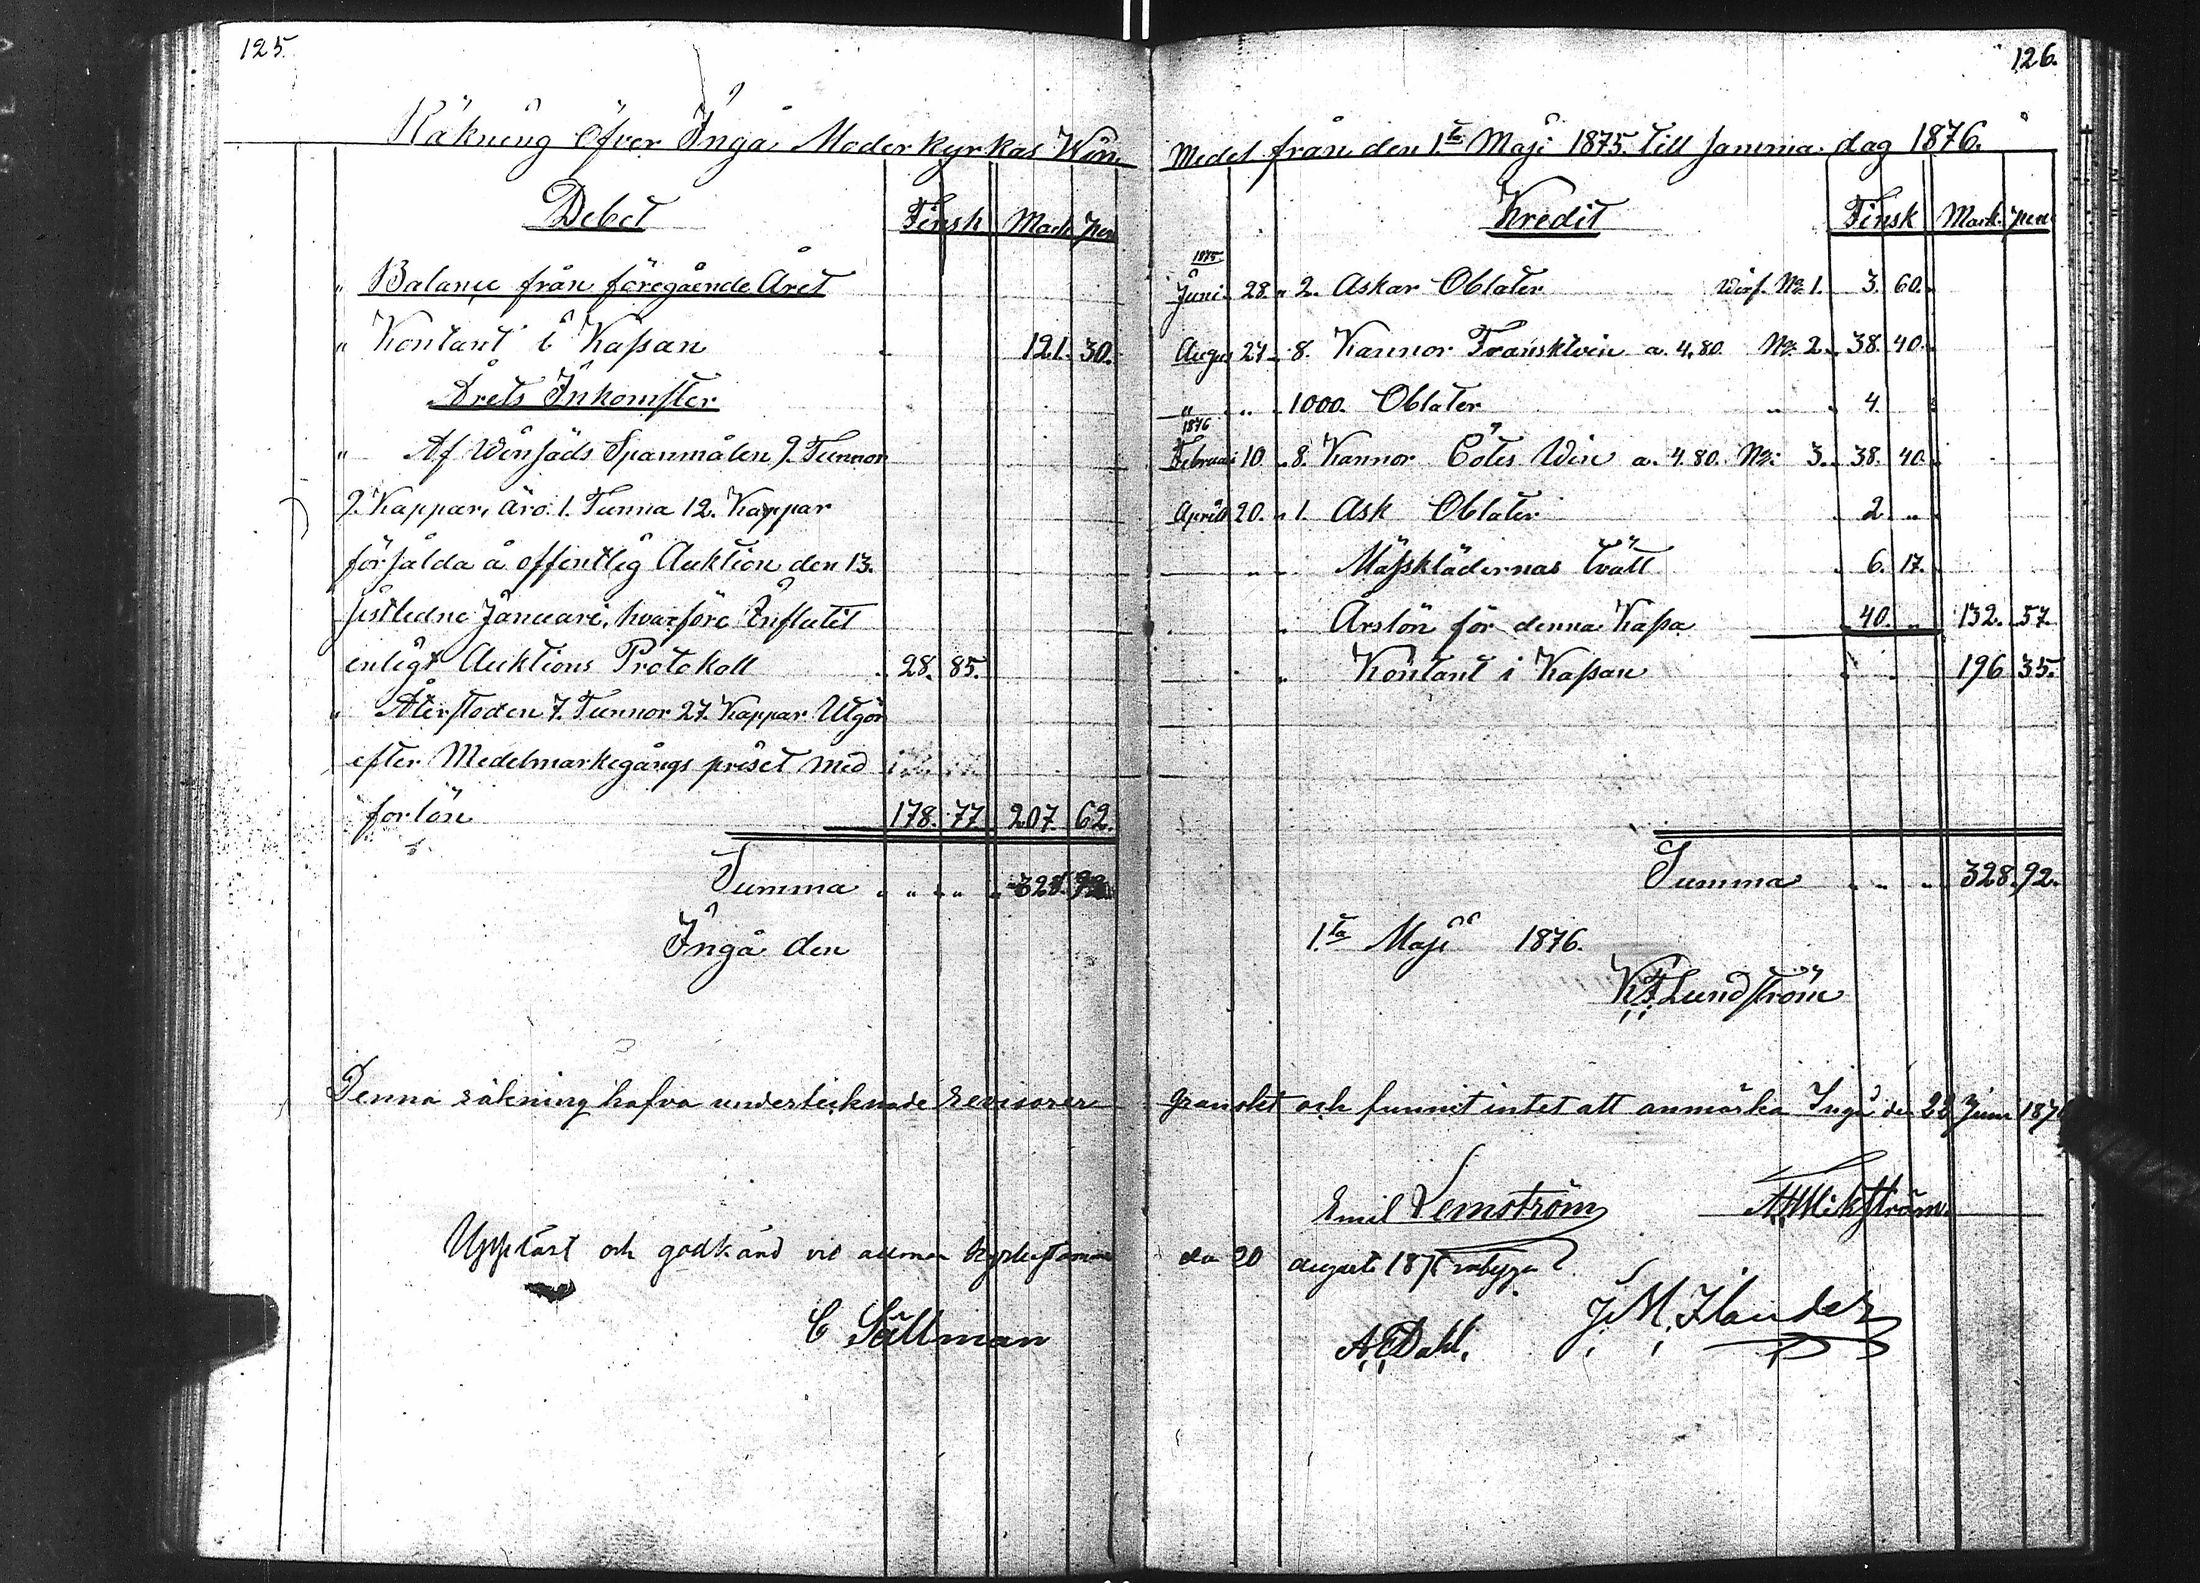 125.
Räkning Öfver Ingå Moderkyrkas Win
Debet Finsk Mark pen
" Balance från föregående Året
" Kontant i Kaßan 121. 30.
Årets Inkomster
" Af Winsäds Spanmålen 9. Tunnor
9. Kappar, äro. 1. Tunna 12. Kappar
försålda å offentlig Auktion den 13.
sistledne Januari, hvarföre Influtit
enligt Auktions Protokoll 28. 85.
" Återstoden 7. Tunnor 27. Kappar Utgör
efter Medelmarkegångs priset med
forlön 178. 77. 207. 62.
Summa " " " " 328. 92.
Ingå den
Denna räkning hafva undertecknade revisorer
Uppläst och godkänd vid allmän kyrkostämma
C Sållman
126.
Medel från den 1.ta Maji 1875. till samma dag 1876.
Kredit Finsk Mark. pen
1875
Juni 28. " 2. Askar Oblater Verif. No 1. 3. 60.
Augus 24 " 8. Kannor Fransktvin a. 4,80. No 2. 38. 40.
" " 1000. Oblater " 4. "
1876
Februari 10 " 8. Kannor Côtes Win a. 4.80. No: 3. 38. 40.
April 20. " 1. Ask Oblater 2. "
" " Mäßklädernas tvätt 6. 17.
" Årslön för denna Kaßa 40. " 132. 57.
" " Kontant i Kaßan " " 196 35.
Summa " " " 328. 92.
1.ta Maji 1876.
KF Lundström
granskat och funnit intet att anmärka Ingå den 22 Juni 1876
Emil Lemström
den 20 augusti 1876
A.E Dahl. J. M. Ilander